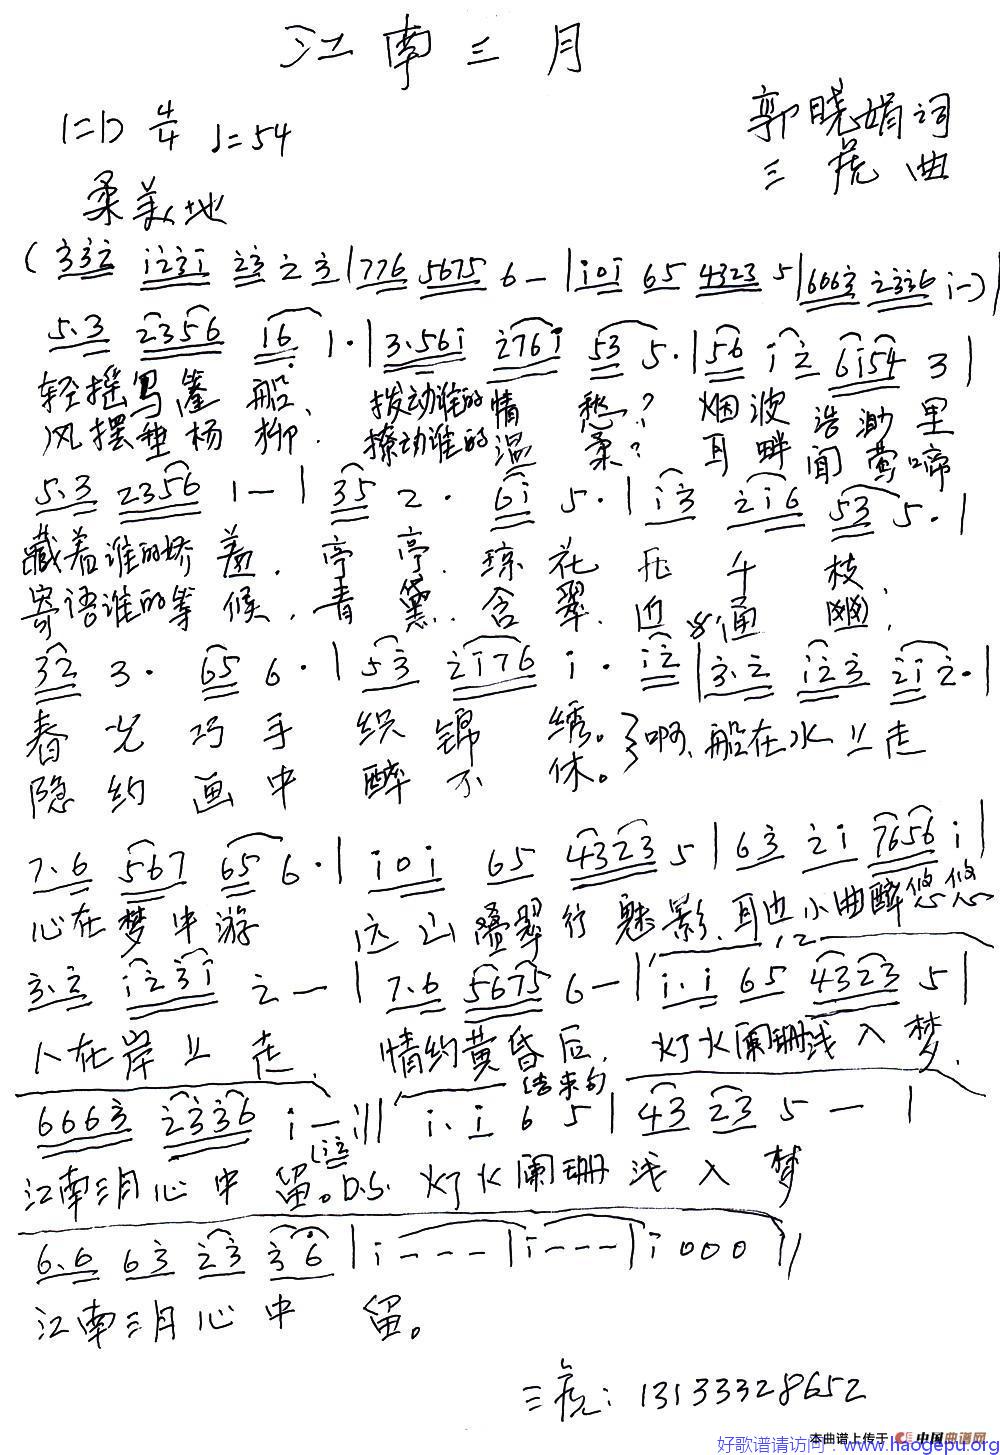 江南三月
1=D 4/4 ♩=54
郭晓娟词
三虎曲
柔美地
(3̇3̇2̇ 1̇2̇3̇1̇ 2̇3̇ 2̇ 3̇|776 5675 6-|1̇01̇ 65 4323 5|6663̇ 2̇3̇3̇6 1̇-)|
5.3 2356 16 1.|3.561̇ 2̇761̇ 53 5.|56 1̇ 2̇ 61̇54 3|
轻摇乌篷船、拨动谁的情愁？烟波浩渺里
风摆垂杨柳．撩动谁的温柔？耳畔闻莺啼
5.3 2356 1-|35 2. 61̇ 5.|1̇3̇ 2̇1̇6 53 5.|
藏着谁的娇羞．亭亭．琼花开千枝
寄语谁的等候．青黛．含翠．通幽；
32 3. 65 6.|53̇ 2̇1̇76 1̇. 1̇2̇|3̇.2̇ 1̇2̇3̇ 2̇1̇ 2̇.|
春光巧手织锦绣。}啊，船在水上走
隐约画中醉不休。
7.6 567 65 6.|1̇01̇ 65 4323 5|63̇ 2̇1̇ 7656 1̇|
心在梦中游 远山叠翠行魅影．耳边小曲醉悠悠
3̇.2̇ 1̇2̇3̇1̇ 2̇-|7.6 5675 6-|1̇.1̇ 65 4323 5|
1 2
人在岸上走．情约黄昏后，灯火阑珊浅入梦．
结束句
6663̇ 2̇3̇3̇6 1̇-:||1̇.1̇ 6 5|43 23 5-|
(1̇2̇
江南三月心中留。D.S. 灯火阑珊浅入梦
6.6 63̇ 2̇3̇ 3̇6|1̇---|1̇---|1̇000||
江南三月心中 留。
三虎：13133328652
本曲谱上传于 中国曲谱网
好歌谱请访问：www.haogepu.org